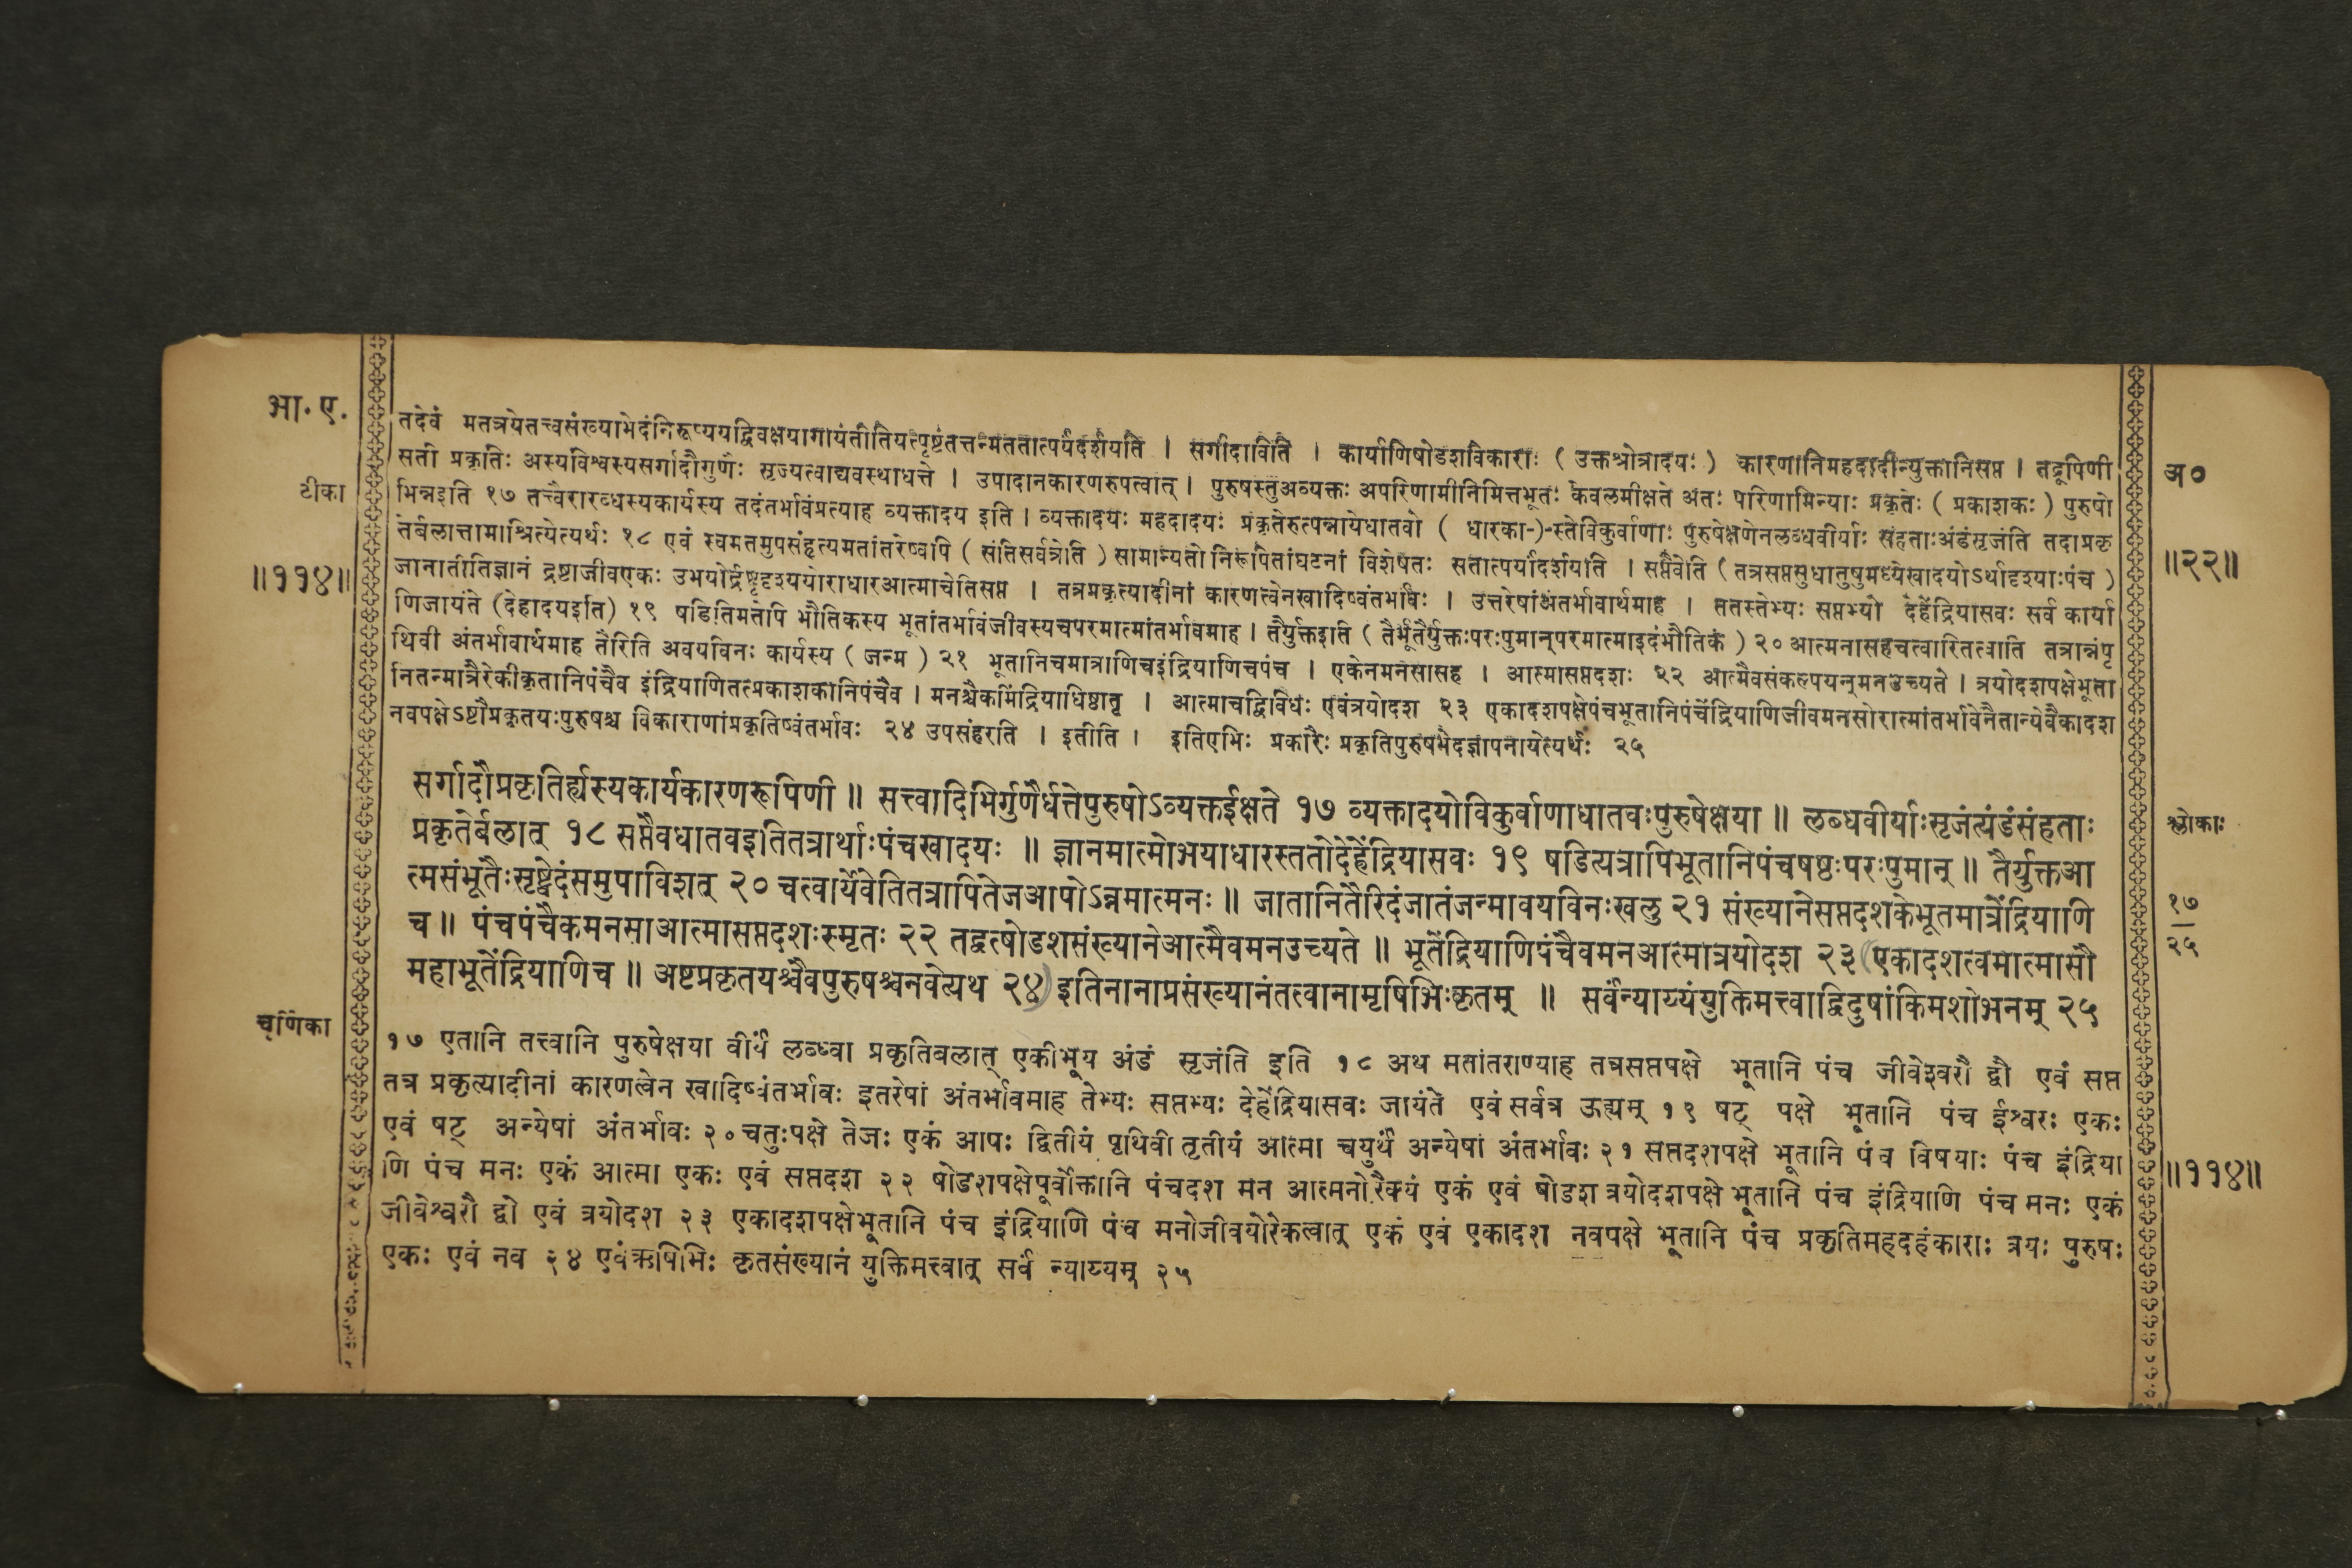 भा. ए.
तदेवं मतत्रयेतत्त्वसंख्याभेदंनिरूप्ययद्विवक्षयागायंतीतियत्पृष्टंतत्तन्मततात्पर्यंदर्शयति । सर्गादाविति । कार्याणिषोडशविकाराः ( उक्तश्रोत्रादयः ) कारणानिमहदादीन्युक्तानिसप्त । तद्रूपिणी
सती प्रकृतिः अस्यविश्वस्यसर्गादौगुणैः सृज्यत्वाद्यवस्थाधत्ते । उपादानकारणरुपत्वात् । पुरुषस्तुअव्यक्तः अपरिणामीनिमित्तभूतः केवलमीक्षते अतः परिणामिन्याः प्रकृतेः ( प्रकाशकः ) पुरुषो
टीका
अ०
भिन्नइति १७ तत्त्वैरारब्धस्यकार्यस्य तदंतर्भावंप्रत्याह व्यक्तादय इति । व्यक्तादयः महदादयः प्रकृतेरुत्पन्नायेधातवो ( धारका-)-स्तेविकुर्वाणाः पुरुषेक्षणेनलब्धवीर्याः संहताःअंडंसृजंति तदाप्रकृ
तेर्बलात्तामाश्रित्येत्यर्थः १८ एवं स्वमतमुपसंहृत्यमतांतरेष्वपि ( संतिसर्वत्रेति ) सामान्यतो निरूपितांघटनां विशेषतः सतात्पर्यांदर्शयति । सप्तैवेति ( तत्रसप्तसुधातुषुमध्येखादयोऽर्थादृश्याःपंच )
॥११४॥
॥२२॥
जानातीतिज्ञानं द्रष्टाजीवएकः उभयोर्द्रष्टृदृश्ययोराधारआत्माचेतिसप्त । तत्रप्रकृत्यादीनां कारणत्वेनखादिष्वंतर्भावः । उत्तरेषांअंतर्भावार्थमाह । ततस्तेभ्यः सप्तभ्यो देहेंद्रियासवः सर्व कार्या
णिजायंते (देहादयइति) १९ षडितिमतेपि भौतिकस्य भूतांतर्भावंजीवस्यचपरमात्मांतर्भावमाह । तैर्युक्तइति ( तैर्भूतैर्युक्तःपरःपुमान्परमात्माइदंभौतिकं ) २० आत्मनासहचत्वारितत्वाति तत्रान्नंपृ
थिवी अंतर्भावार्थमाह तैरिति अवयविनः कार्यस्य ( जन्म ) २१ भूतानिचमात्राणिचइंद्रियाणिचपंच । एकेनमनसासह । आत्मासप्तदशः २२ आत्मैवसंकल्पयन्मनउच्यते । त्रयोदशपक्षेभूता
नितन्मात्रैरेकीकृतानिपंचैव इंद्रियाणितत्प्रकाशकानिपंचैव । मनश्चैकमिंद्रियाधिष्ठातृ । आत्माचद्विविधः एवंत्रयोदश २३ एकादशपक्षेपंचभूतानिपंचेंद्रियाणिजीवमनसोरात्मांतर्भावेनैतान्येवैकादश
नवपक्षेऽष्टौप्रकृतयःपुरुषश्च विकाराणांप्रकृतिष्वंतर्भावः २४ उपसंहरति । इतीति । इतिएभिः प्रकारैः प्रकृतिपुरुषभेदज्ञापनायेत्यर्थः २५
सर्गादौप्रकृतिर्ह्यस्यकार्यकारणरूपिणी ॥ सत्त्वादिभिर्गुणैर्धत्तेपुरुषोऽव्यक्तईक्षते १७ व्यक्तादयोविकुर्वाणाधातवःपुरुषेक्षया ॥ लब्धवीर्याःसृजंत्यंडंसंहताः
श्लोकाः
प्रकृतेर्बलात् १८ सप्तैवधातवइतितत्रार्थाःपंचखादयः ॥ ज्ञानमात्मोभयाधारस्ततोदेहेंद्रियासवः १९ षडित्यत्रापिभूतानिपंचषष्ठःपरःपुमान् ॥ तैर्युक्तआ
त्मसंभूतैःसृष्ट्वेदंसमुपाविशत् २० चत्वार्येवेतितत्रापितेजआपोऽन्नमात्मनः ॥ जातानितैरिदंजातंजन्मावयविनःखलु २१ संख्यानेसप्तदशकेभूतमात्रेंद्रियाणि
१७
२५
च ॥ पंचपंचैकमनसाआत्मासप्तदशःस्मृतः २२ तद्वत्षोडशसंख्यानेआत्मैवमनउच्यते ॥ भूतेंद्रियाणिपंचैवमनआत्मात्रयोदश २३ (एकादशत्वमात्मासौ
महाभूतेंद्रियाणिच ॥ अष्टप्रकृतयश्चैवपुरुषश्चनवेत्यथ २४) इतिनानाप्रसंख्यानंतत्वानामृषिभिःकृतम् ॥ सर्वंन्याय्यंयुक्तिमत्त्वाद्विदुषांकिमशोभनम् २५
चूर्णिका
१७ एतानि तत्त्वानि पुरुषेक्षया वीर्यं लब्ध्वा प्रकृतिबलात् एकीभूय अंडं सृजंति इति १८ अथ मतांतराण्याह तत्रसप्तपक्षे भूतानि पंच जीवेश्वरौ द्वौ एवं सप्त
तत्र प्रकृत्यादीनां कारणत्वेन खादिष्वंतर्भावः इतरेषां अंतर्भावमाह तेभ्यः सप्तभ्यः देहेंद्रियासवः जायंते एवं सर्वत्र ऊह्यम् १९ षट् पक्षे भूतानि पंच ईश्वरः एकः
एवं षट् अन्येषां अंतर्भावः २० चतुःपक्षे तेजः एकं आपः द्वितीयं पृथिवी तृतीयं आत्मा चयुर्थं अन्येषां अंतर्भावः २१ सप्तदशपक्षे भूतानि पंच विषयाः पंच इंद्रिया
णि पंच मनः एकं आत्मा एकः एवं सप्तदश २२ षोडशपक्षेपूर्वोक्तानि पंचदश मन आत्मनोरैक्यं एकं एवं षोडश त्रयोदशपक्षे भूतानि पंच इंद्रियाणि पंच मनः एकं
॥११४॥
जीवेश्वरौ द्वौ एवं त्रयोदश २३ एकादशपक्षेभूतानि पंच इंद्रियाणि पंच मनोजीवयोरेकत्वात् एकं एवं एकादश नवपक्षे भूतानि पंच प्रकृतिमहदहंकाराः त्रयः पुरुषः
एकः एवं नव २४ एवंऋषिभिः कृतसंख्यानं युक्तिमत्त्वात् सर्वं न्याय्यम् २५